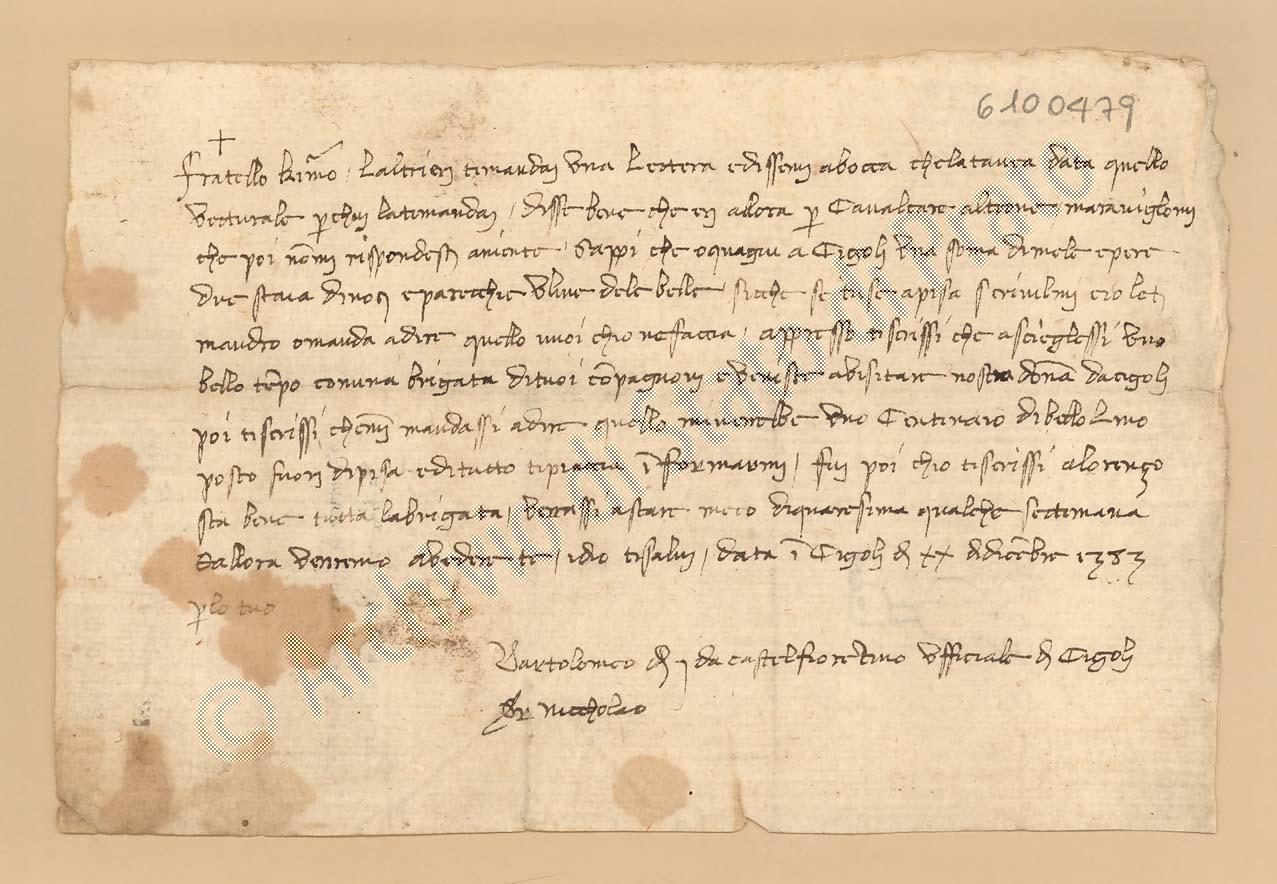 6100479
+
Fratello k[ari]mo / laltrieri timandai una Lectera edissemi abocca chelatavea data quello
vecturale p chui latimandai / disse bene che eri allora p Cavalcare altrove / maraviglomi
che poi nommi rispondesti aniente / Sappi che oquagiu a Cigoli una soma dimele epere
due staia dinoci eparecchie ulive dele belle / sicche se tuse apisa scrivilmi eio leti
mandro omanda adire quello vuoi chio nefaccia / appresso tiscrissi che asciegliessi uno
bello tempo conuna brigata dituoi compagnoni evenisse abisitare nostra donna dacigoli
poi tiscrissi chemi mandassi adire quello miverrebbe uno Centinaio dibello Lino
posto fuori dipisa editutto tipiaccia informarmi / fui poi chio tiscrissi alorenço
sta bene tutta labrigata / verrassi astare meco diquaresima qualche septimana
Eallora verremo abedere te / idio tisalvi / data i Cigoli di xx didicembre 1383
p lo tuo
Bartolomeo di dacastelfiorentino ufficiale di Cigoli
Ser niccholao
© Archivio di Stato di Prato